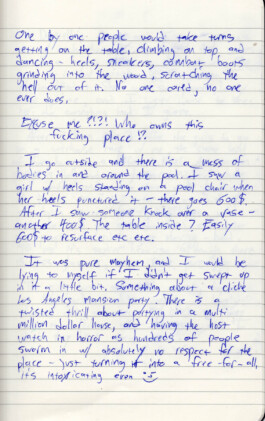 One by one people would take turns
getting on the table, climbing on top and
dancing - heels, sneakers, combat boots
grinding into the wood, scratching the
hell out of it. No one cared, no one
ever does.
Excuse me?!?! Who owns this
fucking place!?
I go outside and there is a mess of
bodies in and around the pool. I saw a
girl w/ heels standing on a pool chair when
her heels punctured it - there goes 600$.
After I saw someone knock over a vase -
another 400$ The table inside? Easily
600$ to resurface etc etc.
It was pure mayhem, and I would be
lying to myself if I didn't get swept up
in it a little bit. Something about a cliche
Los Angeles mansion party. There is a
twisted thrill about partying in a multi
million dollar house, and having the host
watch in horror as hundreds of people
swarm in w/ absolutely no respect for the
place - just turning it into a free-for-all,
its intoxicating even :)